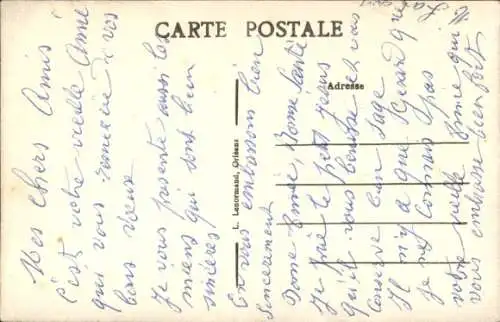 CARTE POSTALE
Adresse
L. Lenormand, Orléans
Mes chers Amis
C'est votre vieille Amie
qui vous remercie de vos
bons vœux
Je vous présente aussi les
miens qui sont bien
sincères
En vous embrassons bien
Sincèrement
Bonne Année, Bonne Santé
Je prie le petit Jesus
qu'il vous bénisse et vous
conserve bien sage
Il n'y a que Ricard que
je ne connais pas
votre vieille Amie qui
vous embrasse bien fort